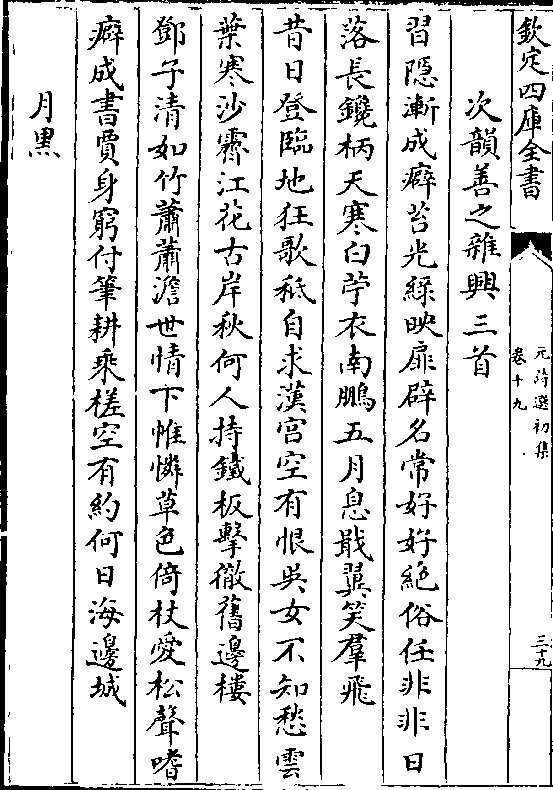 欽定四庫全書
元詩選初集
卷十九
三十九
次韻善之雜興三首
習隱漸成癖苔光綠映扉辟名常好好絶俗任非非日
落長鑱柄天寒白苧衣南鵬五月息戢翼笑羣飛
昔日登臨地狂歌秪自求漢宫空有恨吳女不知愁雲
葉寒沙霽江花古岸秋何人持鐵板擊徹舊邊樓
鄧子清如竹蕭蕭澹世情下帷憐草色倚杖愛松聲嗜
癖成書賈身窮付筆耕乘槎空有約何日海邊城
月黒